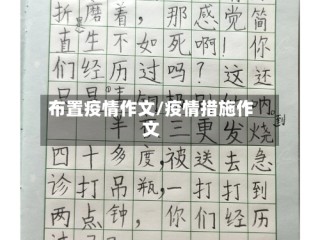 折磨着,那感觉简
直生不如死啊!你
们经历过吗?这还
布置疫情作文/疫情措施作
文
三更发烧
四十多度,被送去急
诊打吊瓶,一打打到
两点钟,你们经历